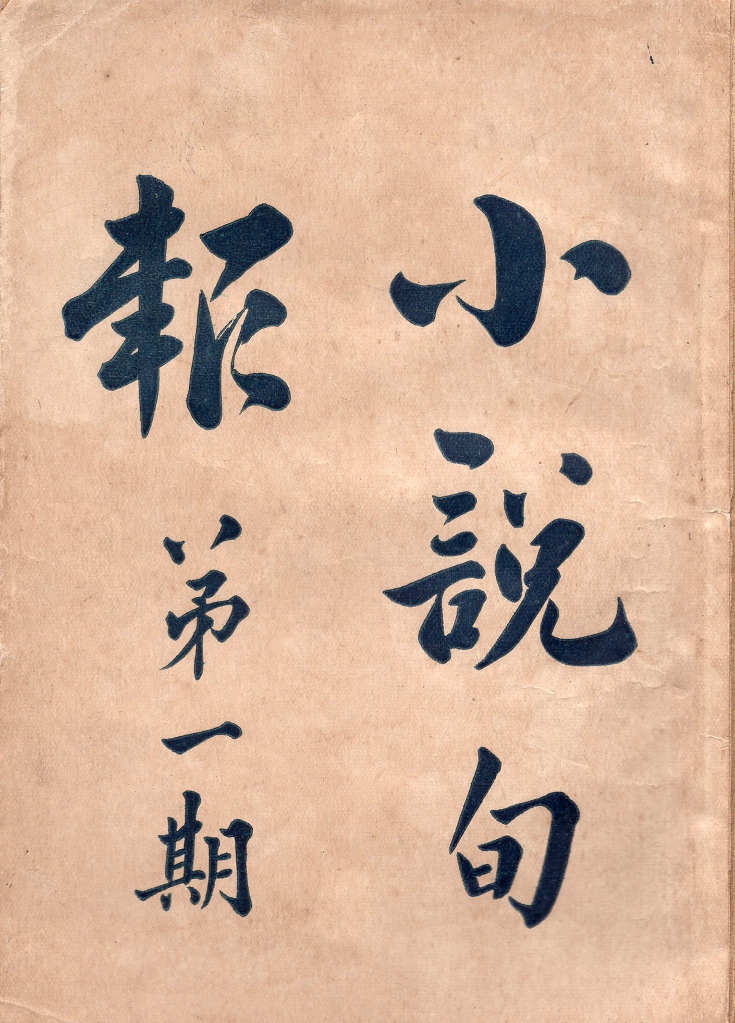 小說旬
報 第一期